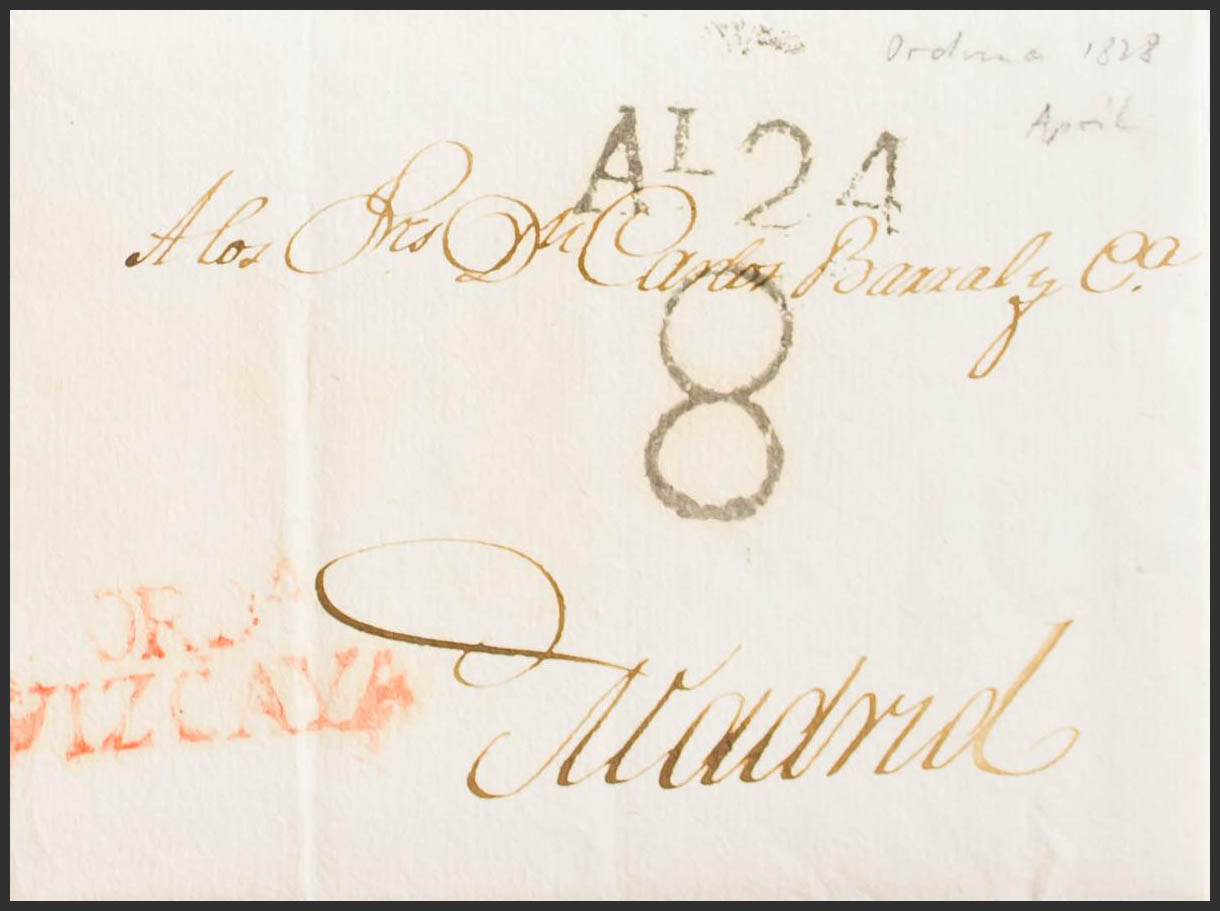 Orduna 1828
April
AL 24
A los Sres Dn Carlos Barraly Ca
8
ORDA
VIZCAYA
Madrid